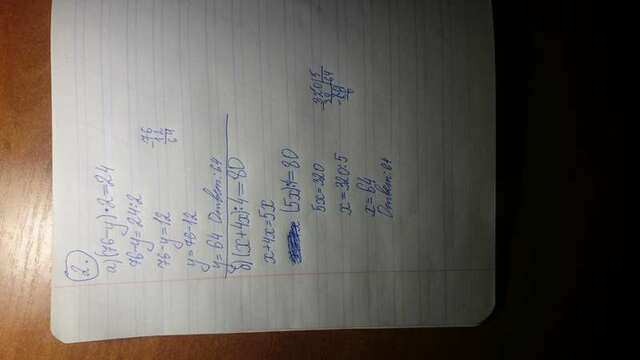 2.
а) (76-y)·2=24
76-y=24:2
76-y=12
y=76-12
y=64 Ответ: 64
-76
12
64
б) (x+4x):4=80
x+4x=5x
(5x):4=80
5x=320
x=320:5
x=64
Ответ: 64
320|5